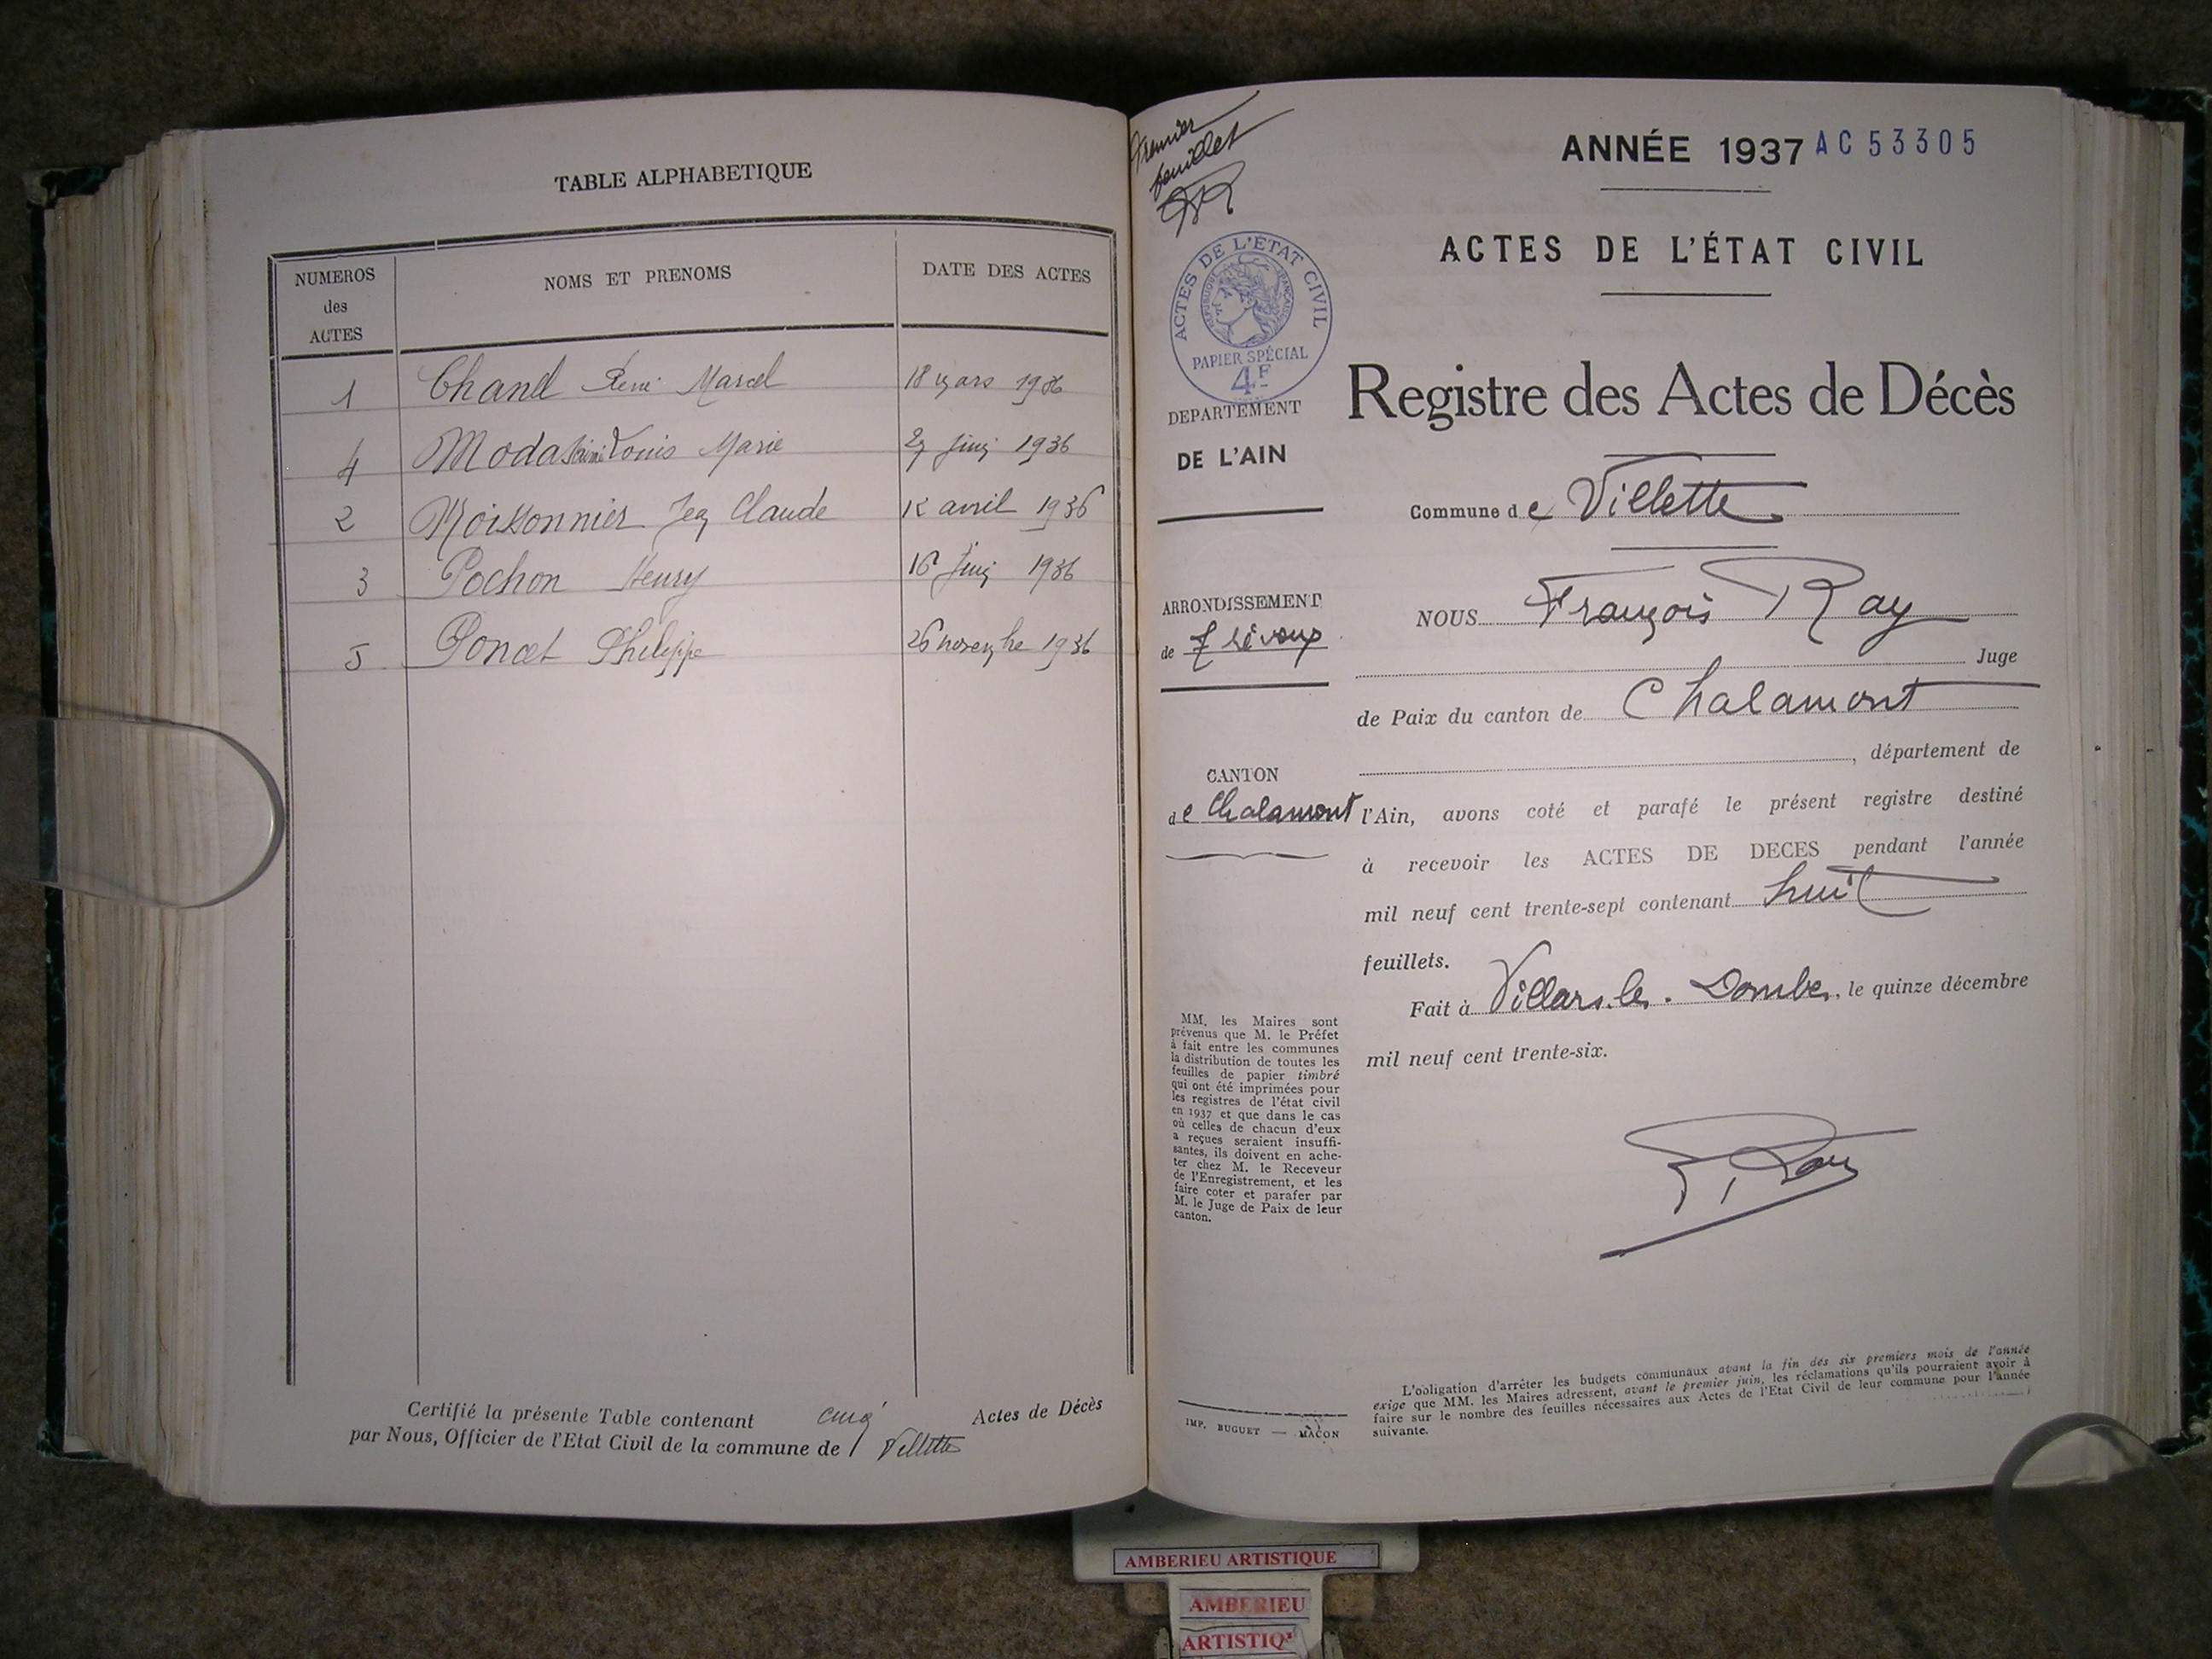 TABLE ALPHABETIQUE
NUMEROS des ACTES
NOMS ET PRENOMS
DATE DES ACTES
1 Chanel René Marcel 18 mars 1936
4 Louis Marie 27 juin 1936
2 Moissonnier Jean Claude 12 avril 1936
3 Pochon Henry 16 juin 1936
5 Poncet Philippe 26 novembre 1936
Certifié la présente Table contenant cinq Actes de Décès
par Nous, Officier de l'Etat Civil de la commune de Villette
Premier
feuillet
ACTES DE L'ETAT CIVIL
REPUBLIQUE FRANÇAISE
PAPIER SPÉCIAL
4F
DEPARTEMENT
DE L'AIN
ARRONDISSEMENT
de Trévoux
CANTON
de Chalamont
MM. les Maires sont
prévenus que M. le Préfet
à fait entre les communes
la distribution de toutes les
feuilles de papier timbré
qui ont été imprimées pour
les registres de l'état civil
en 1937 et que dans le cas
où celles de chacun d'eux
a reçues seraient insuffi-
santes, ils doivent en ache-
ter chez M. le Receveur
de l'Enregistrement, et les
faire coter et parafer par
M. le Juge de Paix de leur
canton.
IMP. BUGUET — MACON
ANNÉE 1937 AC 53305
ACTES DE L'ÉTAT CIVIL
Registre des Actes de Décès
Commune de Villette
NOUS François Ray
Juge
de Paix du canton de Chalamont
, département de
l'Ain, avons coté et parafé le présent registre destiné
à recevoir les ACTES DE DECES pendant l'année
mil neuf cent trente-sept contenant huit
feuillets.
Fait à Villars les Dombes, le quinze décembre
mil neuf cent trente-six.
F. Ray
L'obligation d'arrêter les budgets communaux avant la fin des six premiers mois de l'année
exige que MM. les Maires adressent, avant le premier juin, les réclamations qu'ils pourraient avoir à
faire sur le nombre des feuilles nécessaires aux Actes de l'Etat Civil de leur commune pour l'année
suivante.
AMBERIEU ARTISTIQUE
AMBERIEU
ARTISTIQ